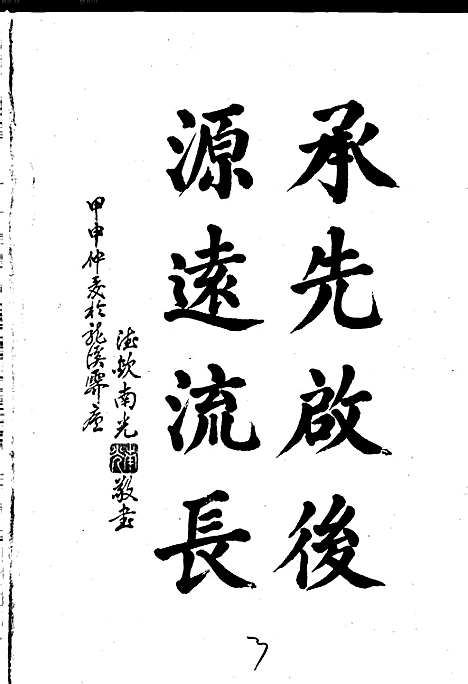 承先啟後
源遠流長
德欽南光 敬書
甲申仲夏於龍溪
3